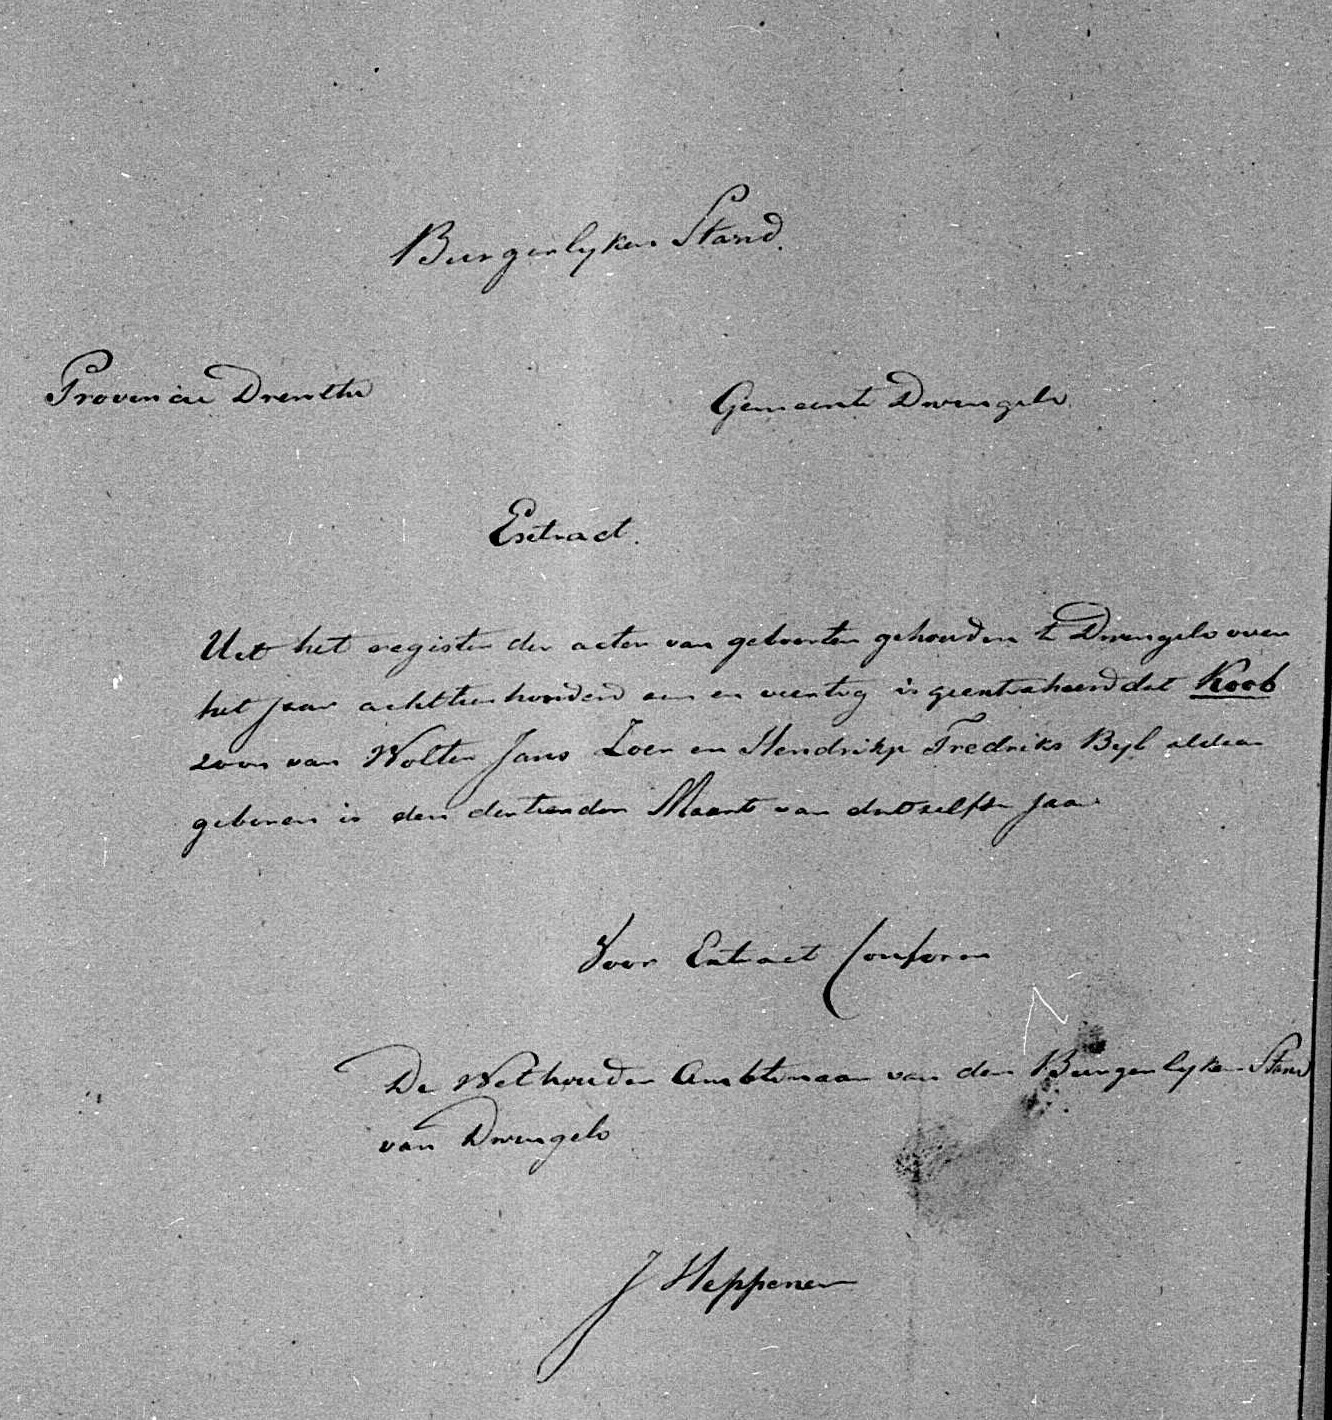 Burgerlyken Stand.
Provincie Drenthe
Gemeente Dwingelo
Extract.
Uit het register der acten van geboorten gehouden te Dwingelo over
het jaar achttienhonderd een en veertig is geextraheerd dat Koob
zoon van Wolter Jans Zoer en Hendrikje Fredriks Byl aldaar
geboren is den dertienden Maart van datzelfde jaar
Voor Extract Conform
De Wethouder Ambtenaar van den Burgerlyken Stand
van Dwingelo
J Heppener